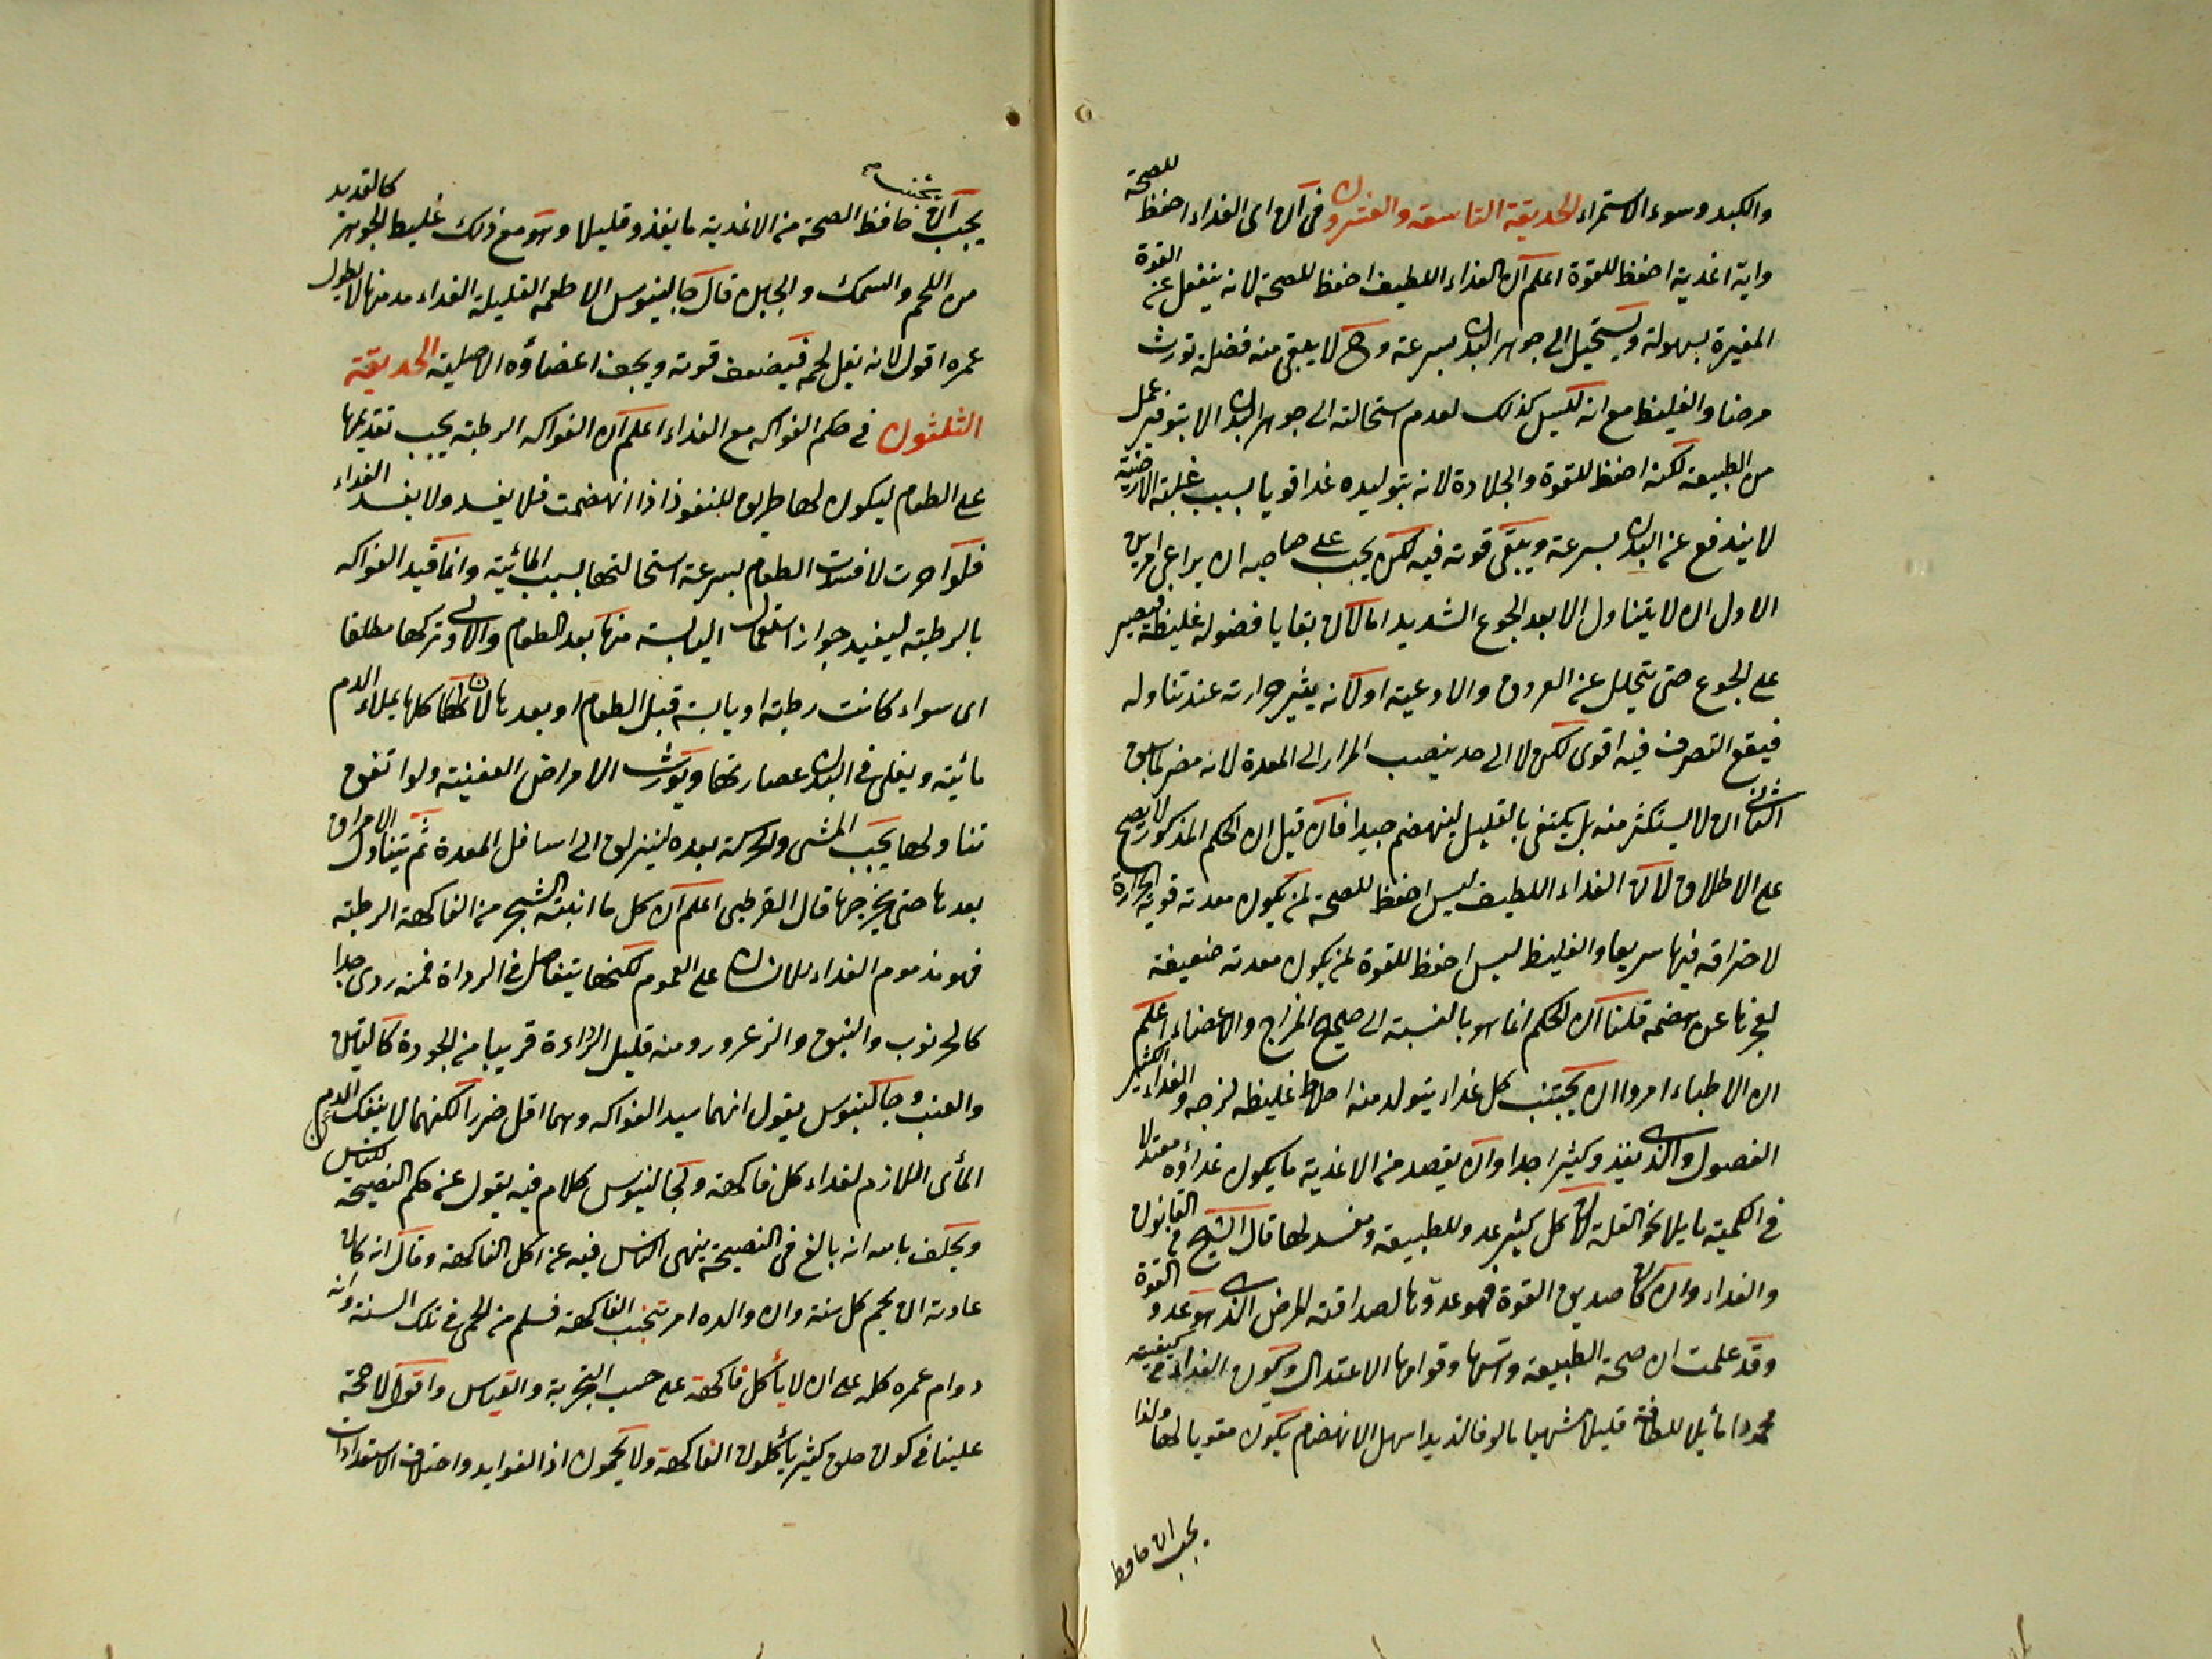 والكبد وسوء الاستمراء الحديقة التاسعة والعشرون في ان اى الغداء احفظ للصحة
واية اغدية احفظ للقوة اعلم ان الغداء اللطيف احفظ للصحة لانه ينفعل عن القوة
المغيرة بسهولة ويستحيل الى جوهر البدن بسرعة وح لا يبقى منه فضلة تورث
مرضا والغليظ مع انه ليس كذلك لعدم استحالته الى جوهر البدن الا بتوفير عمل
من الطبيعة لكنه احفظ للقوة والجلادة لانه بتوليده غدا قويا بسبب غلبة الارضية
لا يندفع عن البدن بسرعة ويبقى قوته فيه لكن يجب على صاحبه ان يراعى امرين
الاول ان لا يتناول الا بعد الجوع الشديد اما لان بقايا فضوله غليظة فيصير
على الجوع حتى يتحلل عن العروق والاوعية او لانه يثير حرارته عند تناوله
فيقع التصرف فيه اقوى لكن لا الى حد ينصب المرار الى المعدة لانه مضر لما سبق
الثانى ان لا يستكثر منه بل يكتفى بالقليل لينهضم جيدا فان قيل ان الحكم المذكور لا يصح
على الاطلاق لان الغداء اللطيف ليس احفظ للصحة لمن يكون معدته قوية الحرارة
لاحتراقه فيها سريعا والغليظ ليس احفظ للقوة لمن يكون معدته ضعيفة
لعجزها عن هضمه قلنا ان الحكم انما هو بالنسبة الى صحيح المزاج والاعضاء اعلم
ان الاطباء امروا ان يجتنب كل غداء يتولد منه اخلاط غليظه لزجه والغداء الكثير
الفضول والذى يغذو كثيرا جدا وان يقصد من الاغدية ما يكون غداؤه معتدلا
في الكمية مايلا نحو القلة لان كل كثير عدو للطبيعة ومفسد لها قال الشيخ في القانون
والغداء وان كان صديق القوة فهو عدوها لصداقته للمرض الذى هو عدو القوة
وقد علمت ان صحة الطبيعة وقوامها الاعتدال ويكون الغداء في كيفيته
محمودا مايلا للطافة قليلا شهيا مالوفا لذيدا سهل الانهضام يكون مقويا لها ولذا
يجب ان حافظ
يجب ان يجتنب حافظ الصحة من الاغدية ما يغذو قليلا وهو مع ذلك غليظ الجوهر كالقديد
من اللحم والسمك والجبن قال جالينوس الاطعمه القليلة الغداء مدمنها لا يطول
عمره اقول لانه يقل لحمه فيضعف قوته ويجف اعضاؤه الاصلية الحديقة
الثلثون في حكم الفواكه مع الغداء اعلم ان الفواكه الرطبة يجب تقديمها
على الطعام ليكون لها طريق للنفوذ اذا انهضمت فلا يفسد ولا يفسد الغداء
فلو اخرت لافسدت الطعام بسرعة استحالتها بسبب المائية وانما قيد الفواكه
بالرطبة ليفيد جواز استعمال اليابسة منها بعد الطعام والاولى تركها مطلقا
اى سواء كانت رطبة او يابسة قبل الطعام او بعدها لان كلها يملاء الدم
مائية ويغلى في البدن عصارتها ويورث الامراض العفنية ولو اتفق
تناولها يجب المشى والحركة بعده لينزلق الى اسافل المعدة ثم يتناول الامراق
بعدها حتى يخرجها قال القرطبى اعلم ان كل ما انبته الشجر من الفاكهة الرطبة
فهو مذموم الغداء للانسان على العموم لكنها يتفاصل في الرداة فمنه ردى جدا
كالخرنوب والنبق والزعرور ومنه قليل الرداءة قريبا من الجودة كالتين
والعنب وجالينوس يقول انهما سيد الفواكه وهما اقل ضررا لكنهما لا ينفك عن الدم
المأى اللازم لغداء كل فاكهة ولجالينوس كلام فيه يقول عن حكم النصيحة للناس
ويحلف بالله انه بالغ في النصيحة ينهى الناس فيه عن اكل الفاكهة وقال انه كان
عادته ان يحم كل سنة وان والده امر بتجنب الفاكهة فسلم من الحمى في تلك السنة وانه
دوام عمره كله على ان لا يأكل فاكهة على حسب التجربة والقياس واقول لا حجة
علينا في كون خلق كثير يأكلون الفاكهة ولا يحمون اذ الفوايد واختلاف الاستعدادات